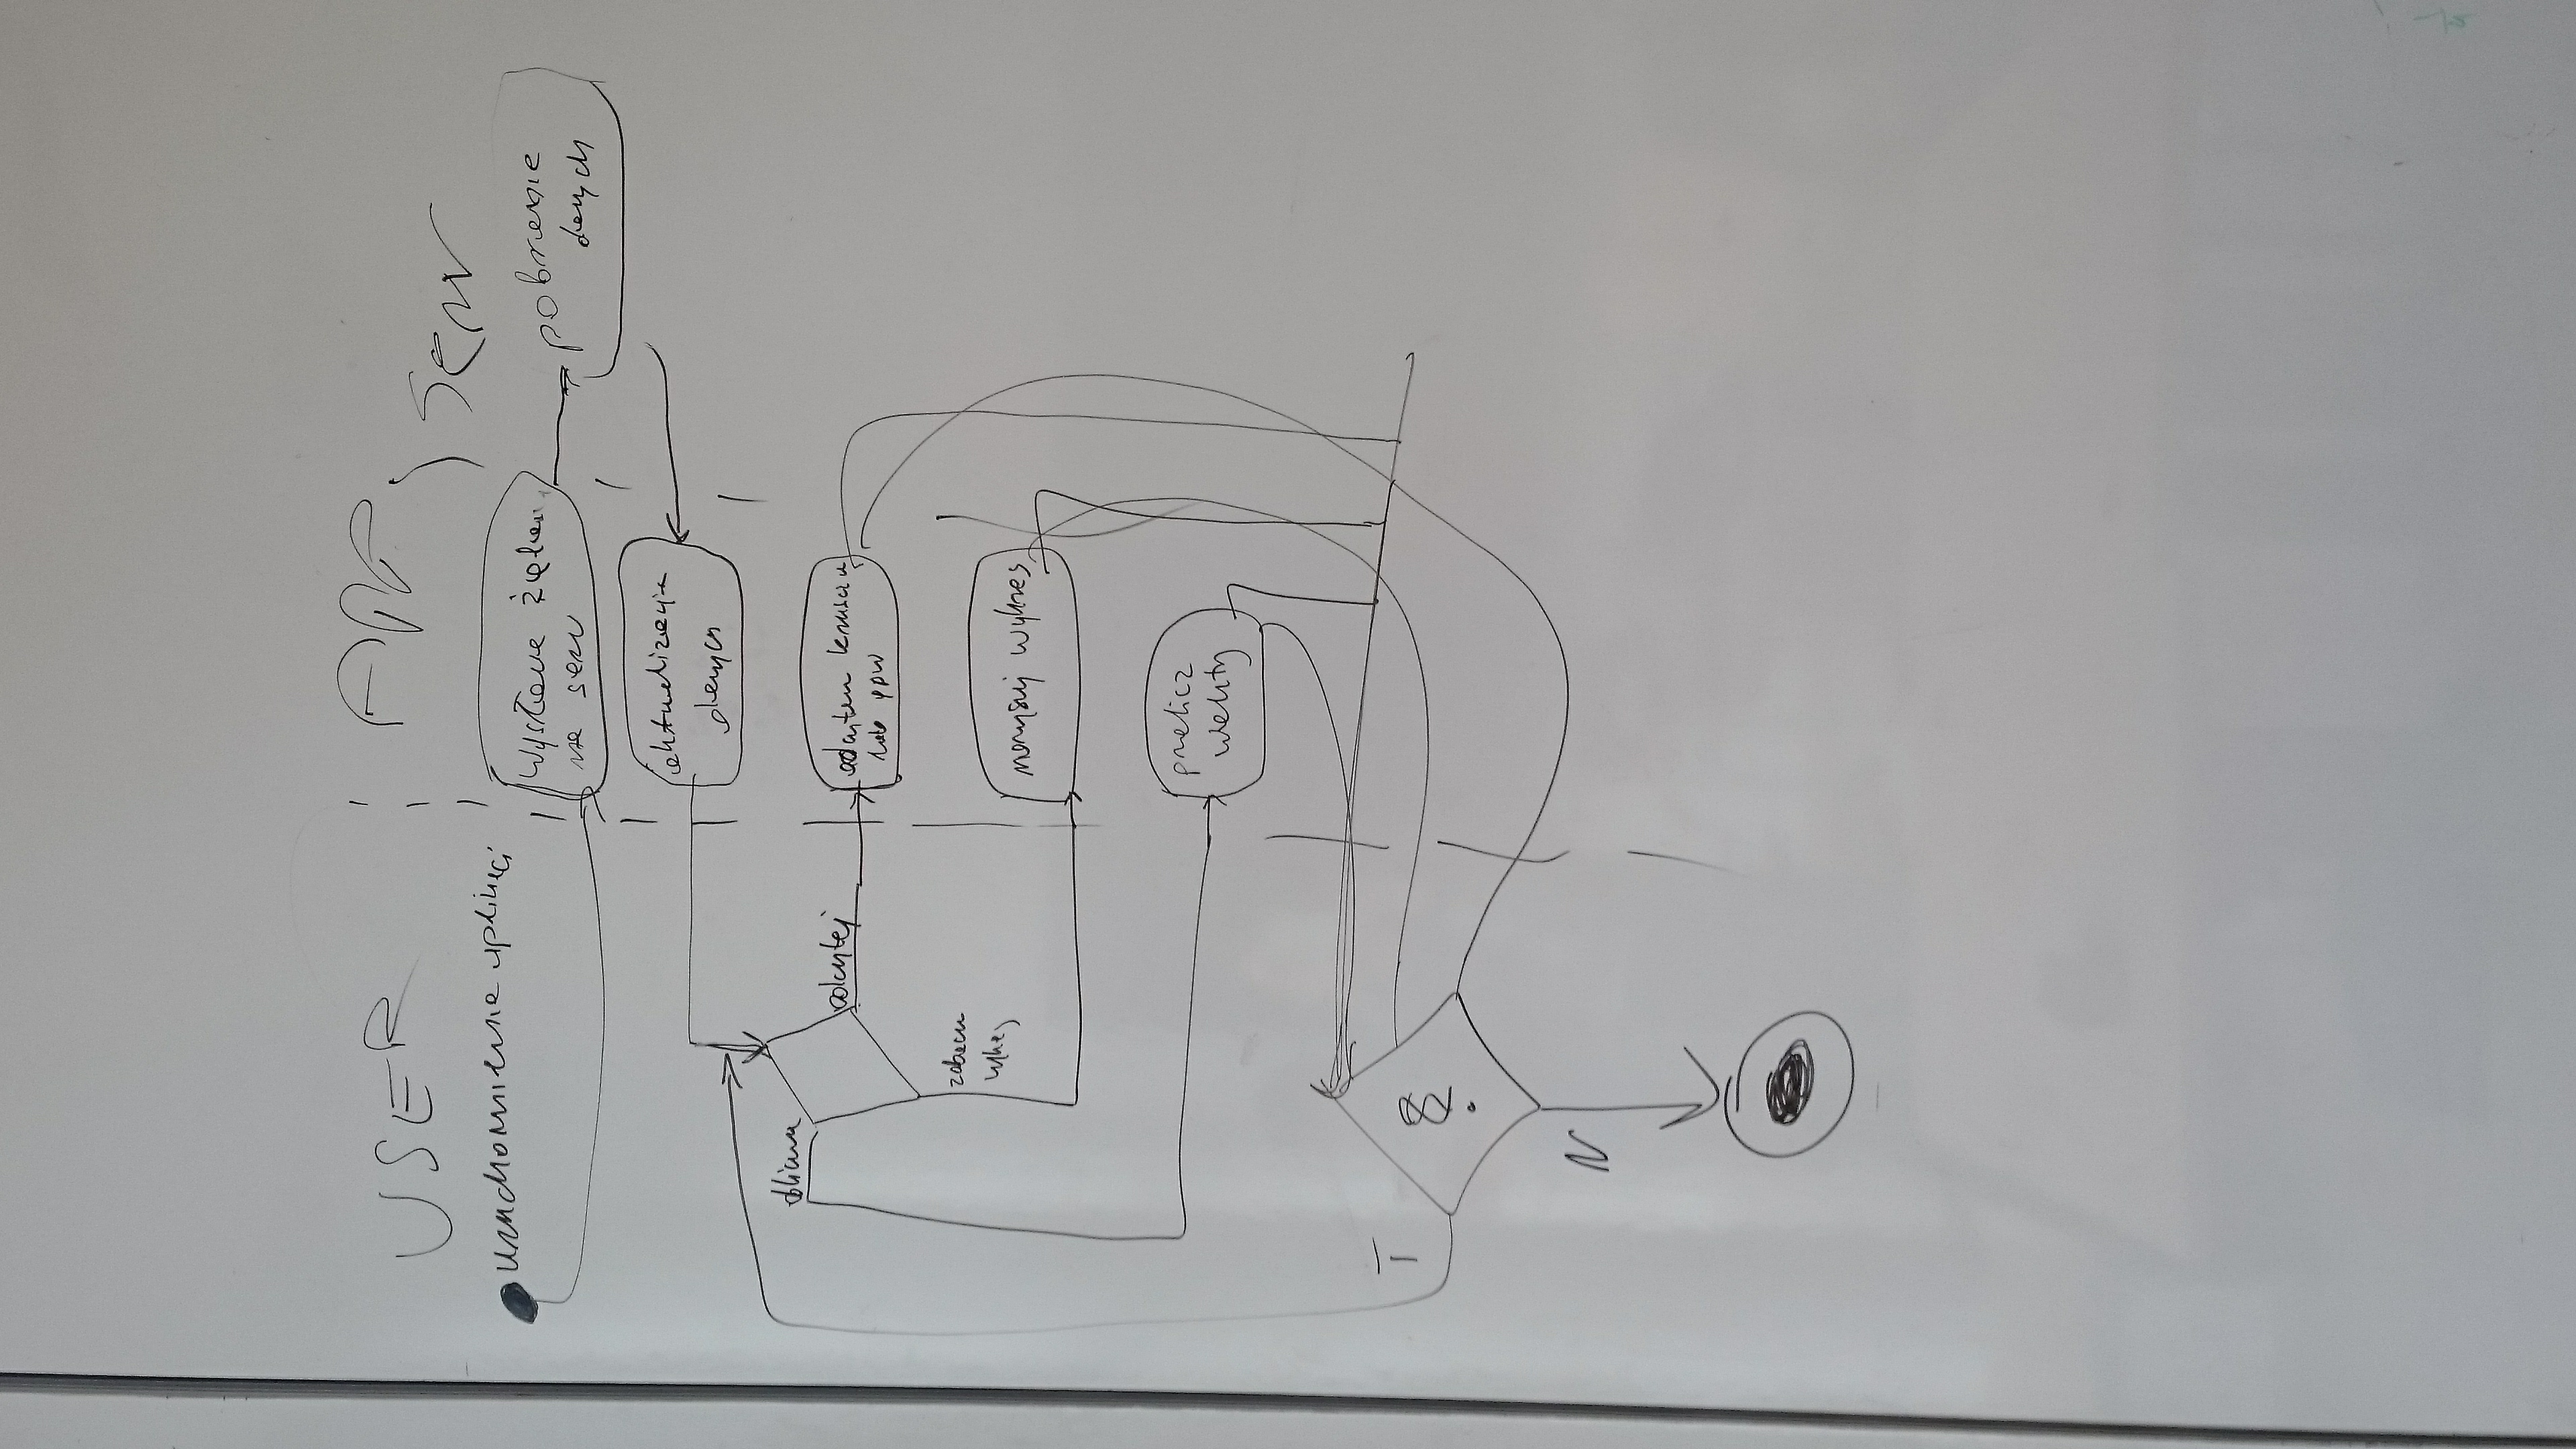 USER
APP
Serw
uruchomienie aplikacji
wysłanie żądań
na serw
pobranie
danych
aktualizacja
danych
odczytaj
lub
zobacz
wykres
narysuj wykres
przelicz
waluty
T
?
N